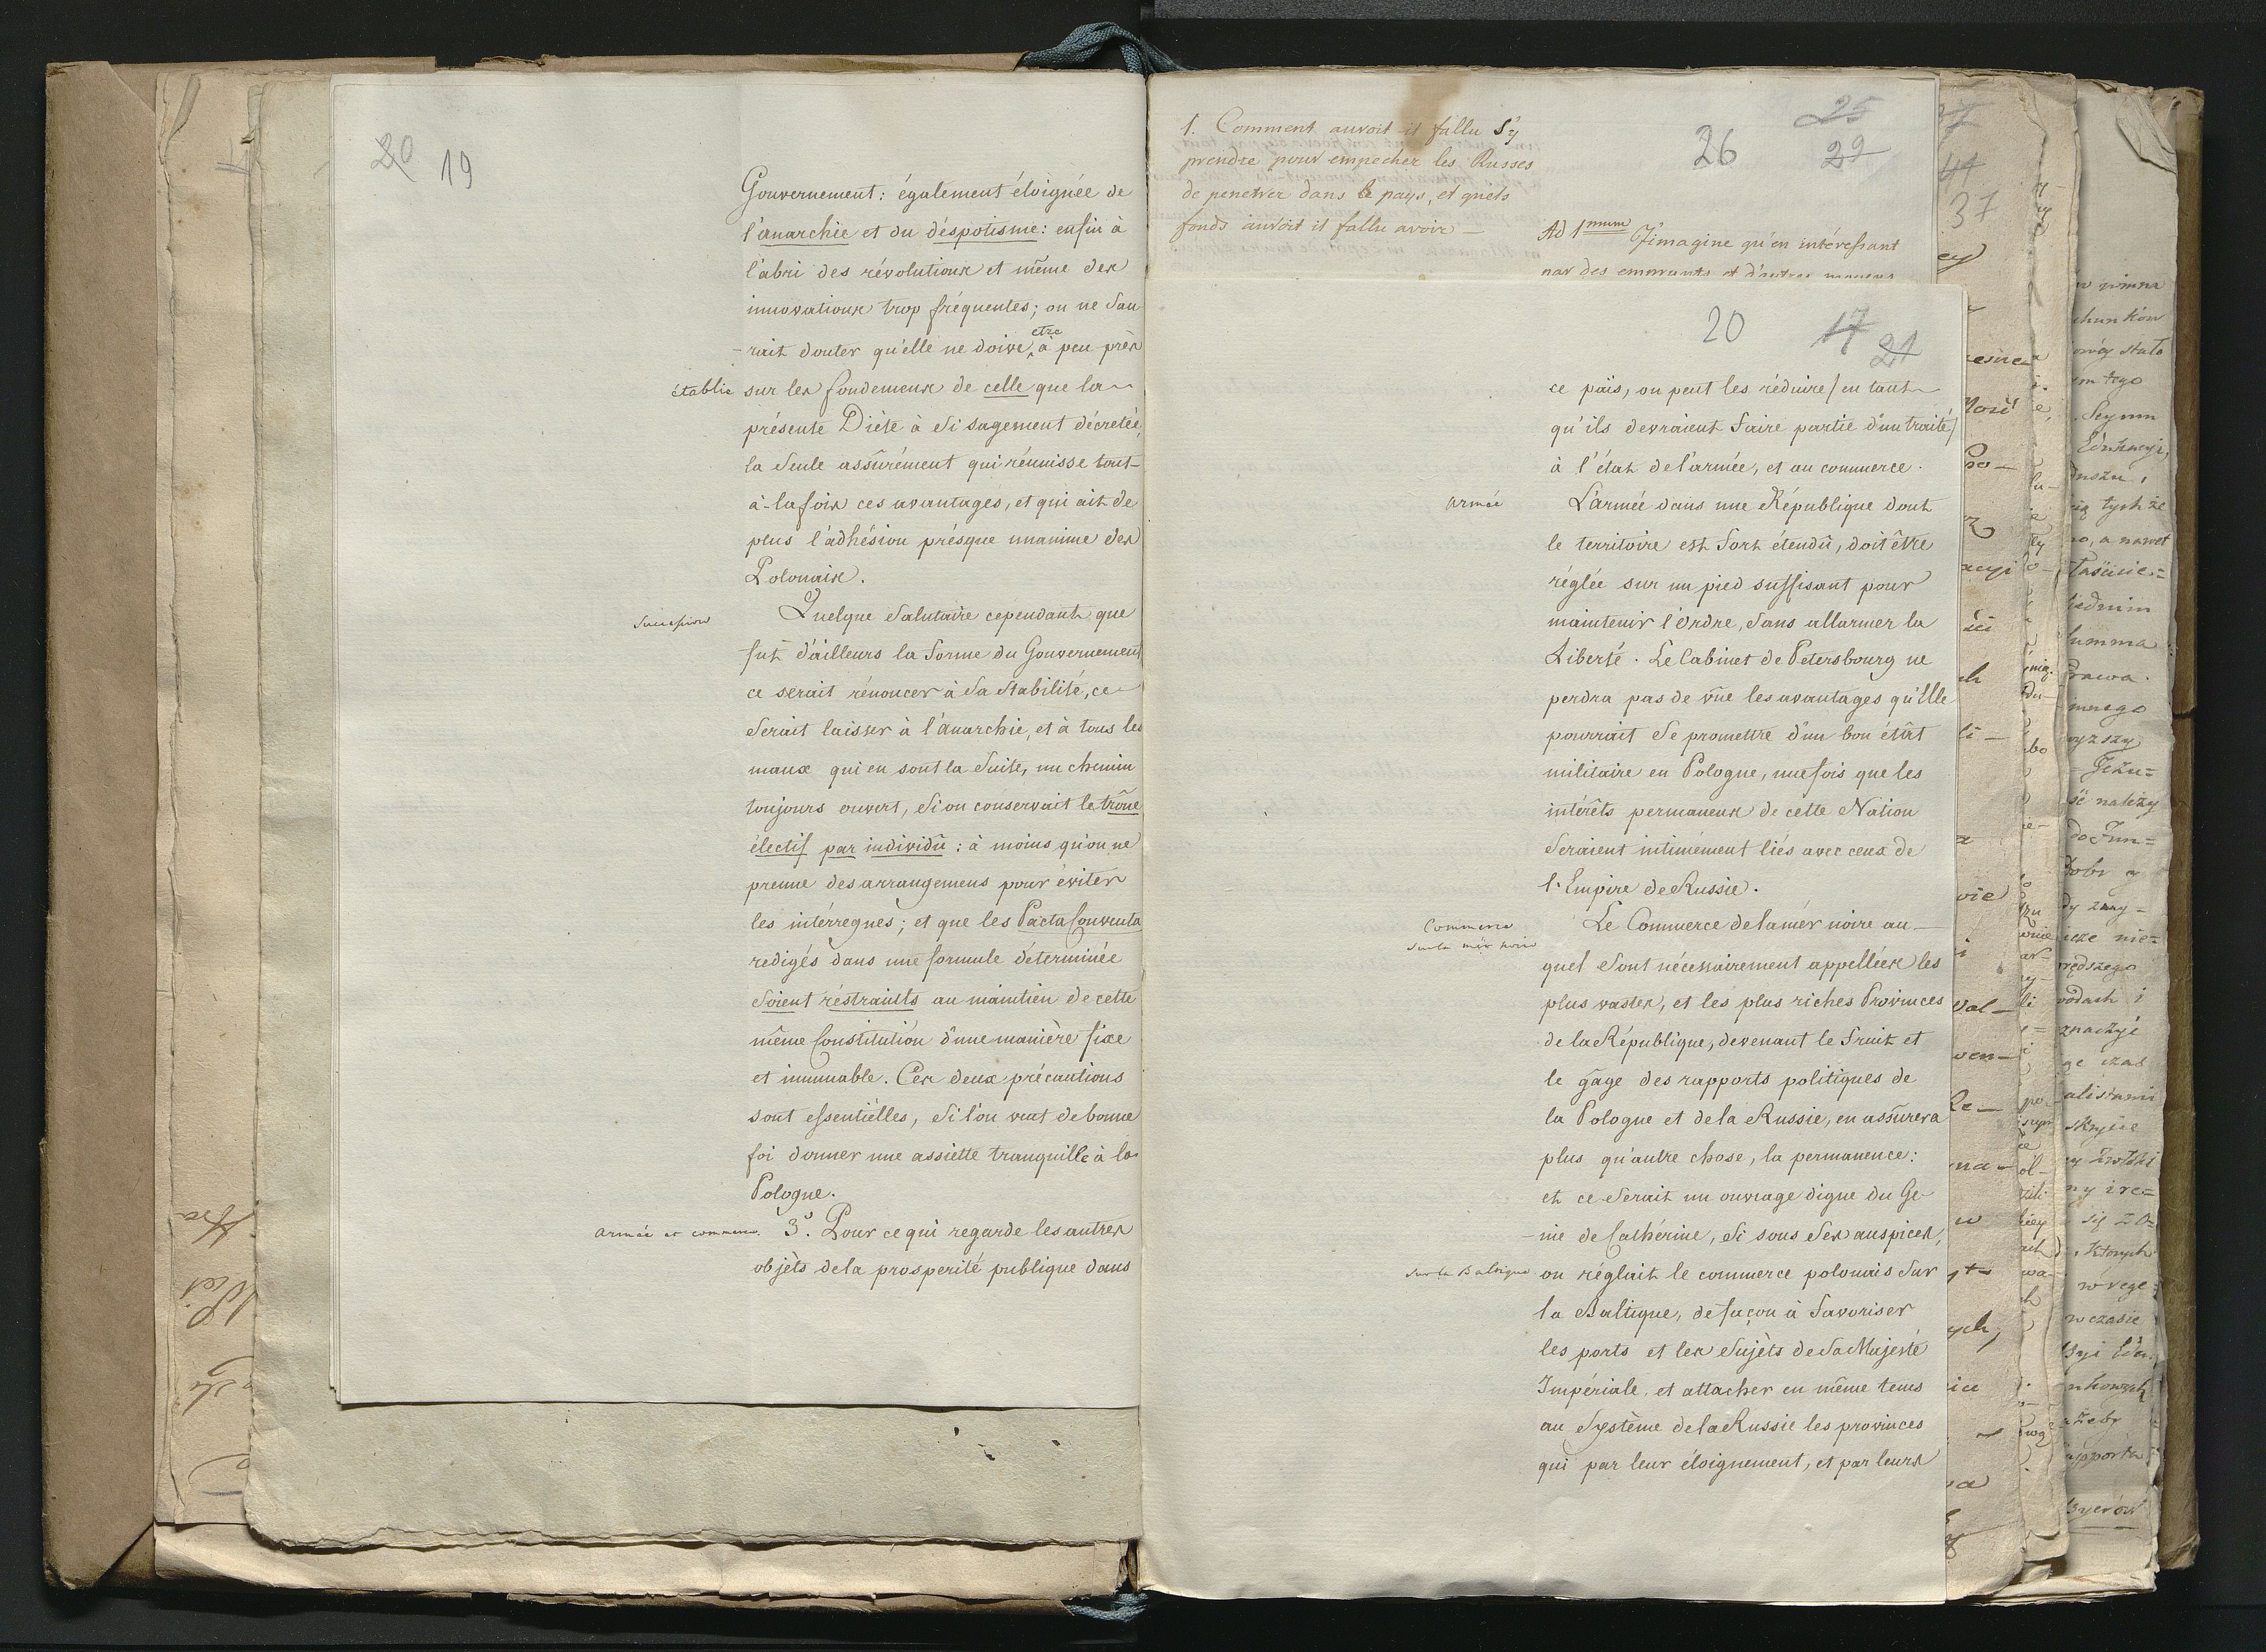 20 19
Gouvernement: également éloignée de
l'anarchie et du déspotisme: enfin à
l'abri des révolutions et même des
innovations trop fréquentes; on ne sau
-rait douter qu'elle ne doive etre à peu près
établie sur les fondemens de celle que la
présente Diète à si sagement décretée,
la seule assûrément qui réunisse tout-
à-la fois ces avantages, et qui ait de
plus l'adhésion présque unanime des
Polonais.
Succession
Quelque salutaire cependant que
fut d'ailleurs la forme du Gouvernement
ce serait rénoncer à sa stabilité, ce
serait laisser à l'anarchie, et à tous les
maux qui en sont la suite, un chemin
toujours ouvert, si on conservait le trône
électif par individû: à moins qu'on ne
prenne des arrangemens pour éviter
les intérregnes; et que les Pacta Conventa
redigés dans une formule déterminée
soient réstraints au maintien de cette
même Constitution d'une manière fixe
et immuable. Ces deux précautions
sont essentiélles, si l'on veut de bonne
foi donner une assiette tranquille à la
Pologne.
Armée et commerce. 3º. Pour ce qui regarde les autres
objèts de la prosperité publique dans
1. Comment auroit-il fallu s'y
prendre pour empecher les Russes
de penetrer dans le pays, et quels
fonds auroit il fallu avoir —
26 25 29
Ad 1mum J'imagine qu'en intéressant
par des emprunts et d'autres moyens
20 17 21
ce païs, on peut les réduire /en tant
qu'ils devraient faire partie d'un traité/
à l'état de l'armée, et au commerce.
Armée
L'armée dans une République dont
le territoire est fort étendû, doit être
réglée sur un pied suffisant pour
maintenir l'Ordre, sans allarmer la
Liberté. Le Cabinet de Petersbourg ne
perdra pas de vûe les avantages qu'Elle
pourrait se promettre d'un bon étât
militaire en Pologne, une fois que les
intérêts permanens de cette Nation
seraient intimément liés avec ceux de
l'Empire de Russie.
Commerce
sur la mér noire
Le Commerce de la mér noire au-
quel sont nécessairement appellées les
plus vastes, et les plus riches Provinces
de la République, devenant le fruit et
le gâge des rapports politiques de
la Pologne et de la Russie, en assûrera
plus qu'autre chose, la permanence:
et ce serait un ouvrage digne du Gé
-nie de Cathérine, si sous ses auspices,
sur la Baltique on réglait le commerce polonais sur
la Baltique, de façon à favoriser
les ports et les sujèts de Sa Majesté
Impériale, et attacher en même tems
au Système de la Russie les provinces
qui par leur éloignement, et par leurs
37